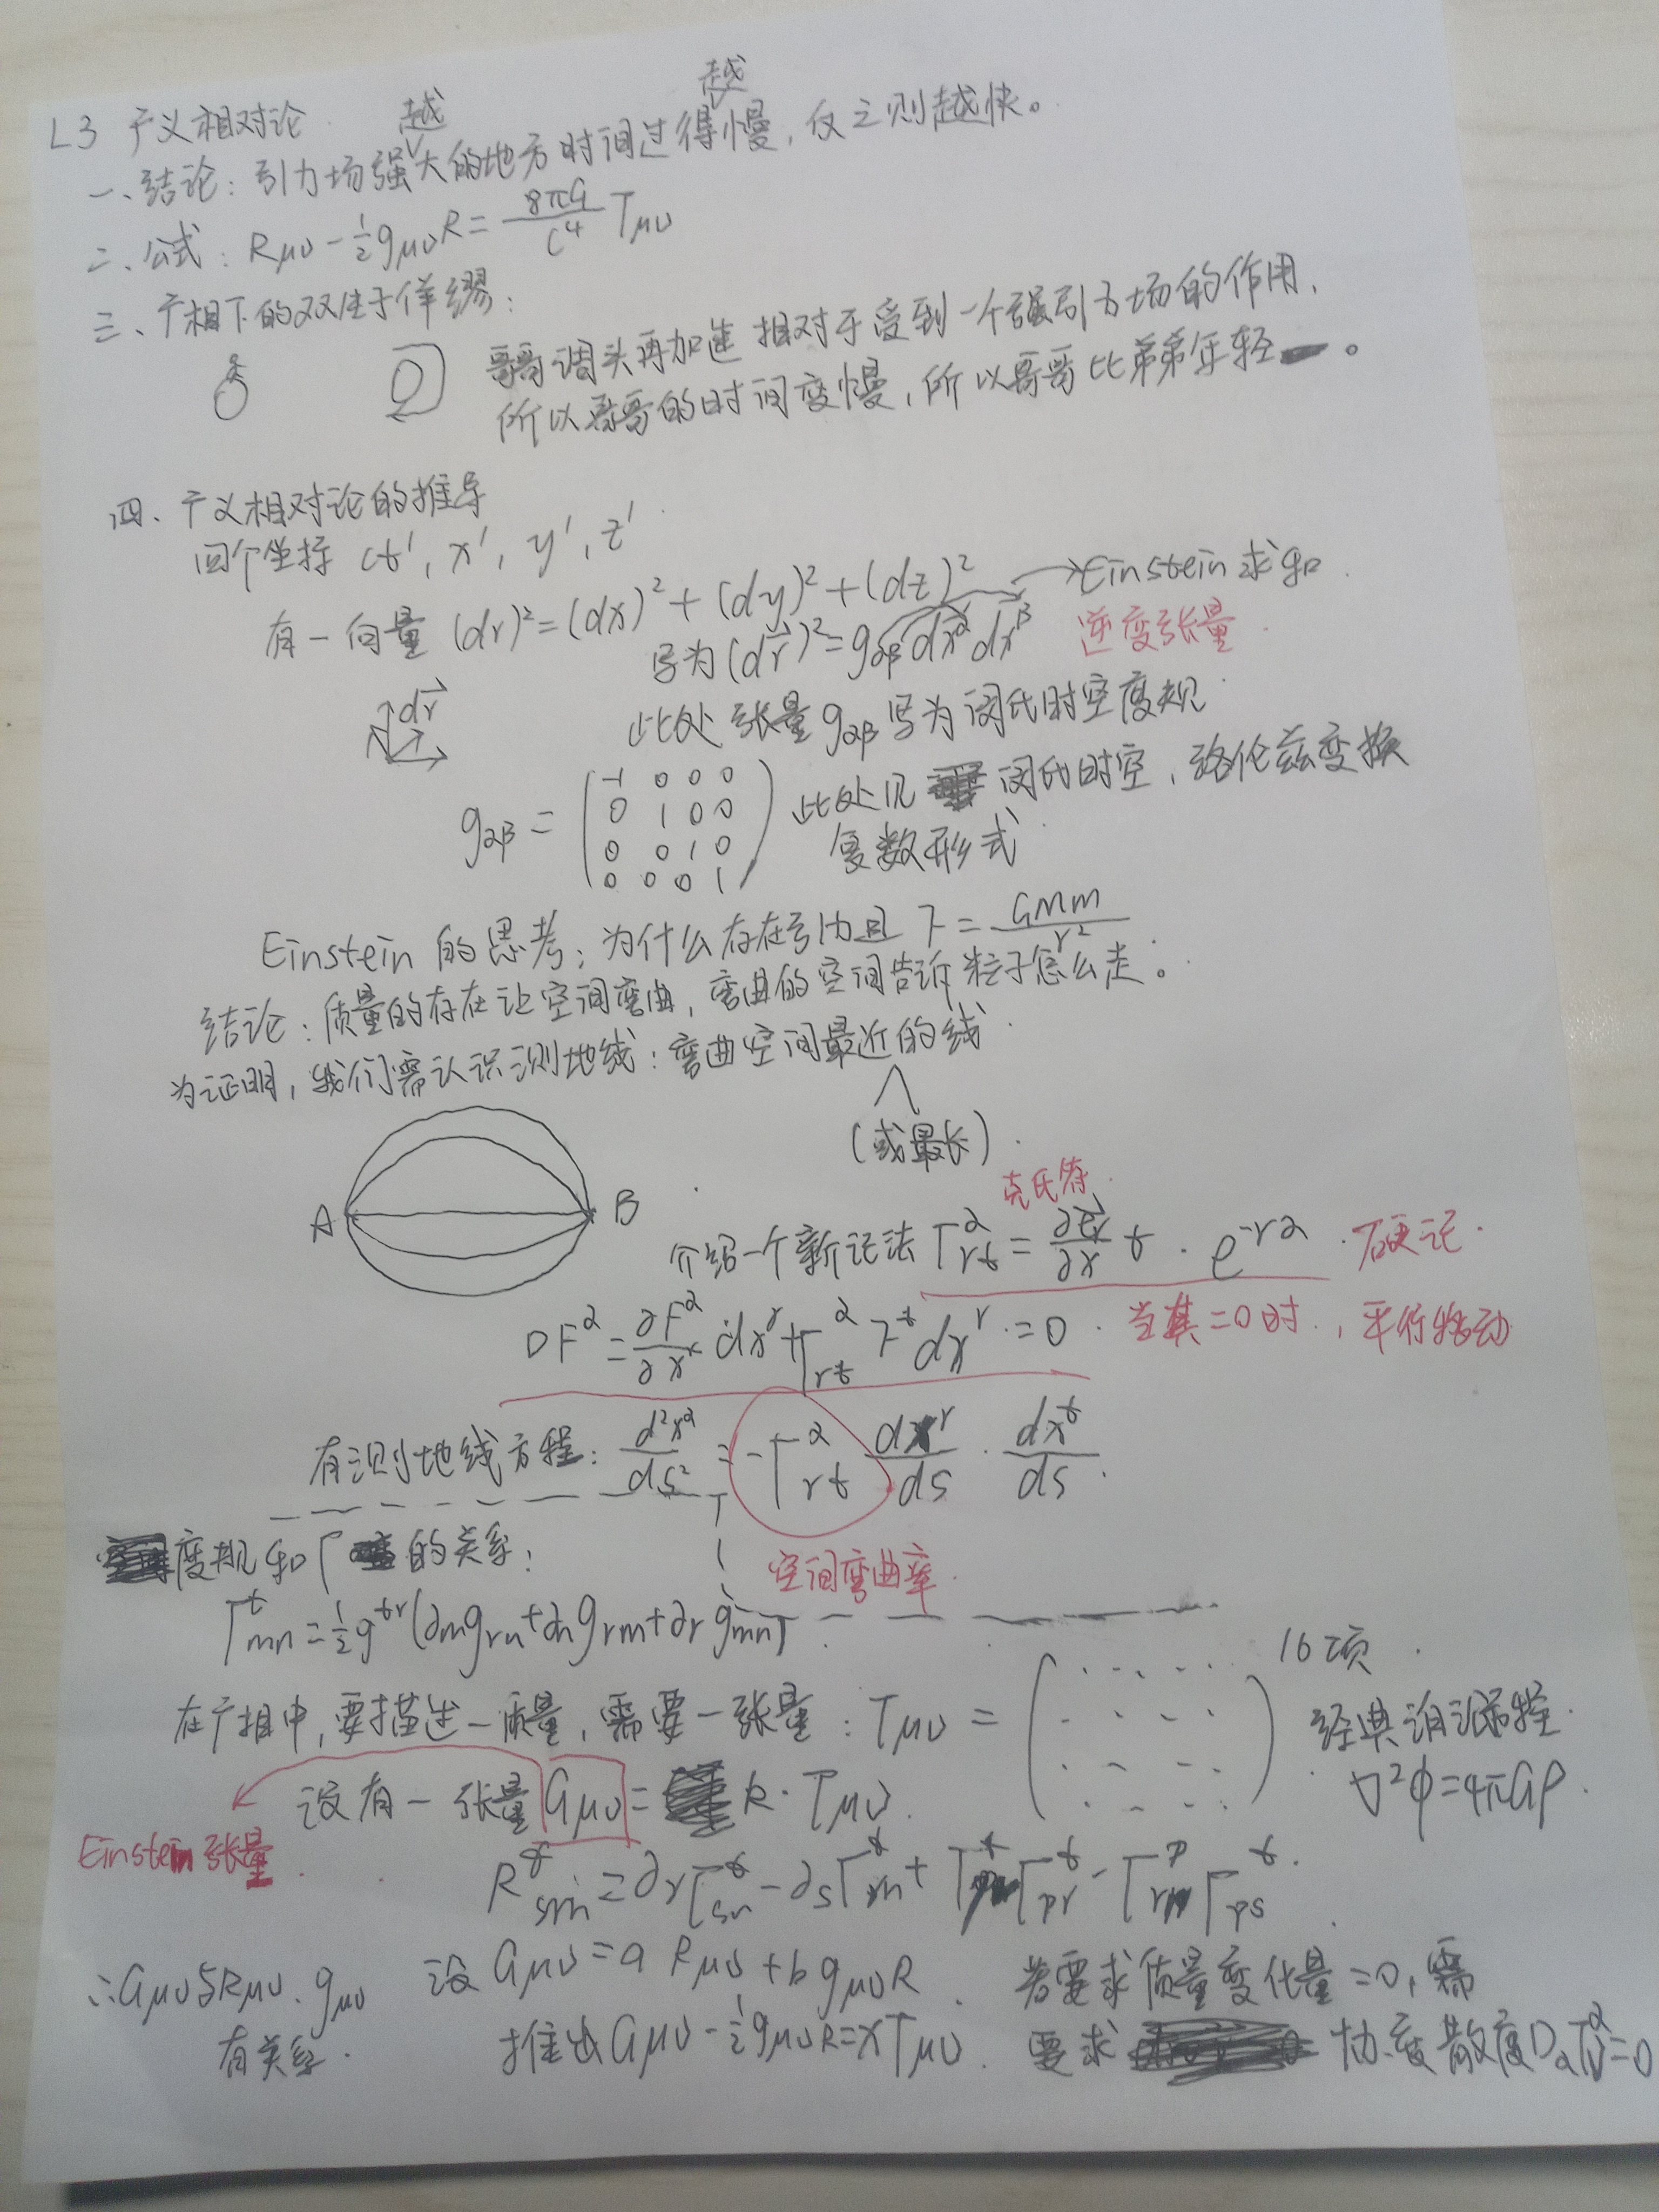 L3 广义相对论
一、结论：引力场越强大的地方时间过得越慢，反之则越快。
二、公式：Rμν - 1/2 gμν R = 8πG/c⁴ Tμν
三、广相下的双生子佯缪：
哥哥调头再加速相对于受到一个强引力场的作用，
所以哥哥的时间变慢，所以哥哥比弟弟年轻。
四、广义相对论的推导
四个坐标 ct', x', y', z'
有一向量 (dr)² = (dx)² + (dy)² + (dz)²
→Einstein求和
写为 (dr⃗)² = gαβ dx^α dx^β 逆变张量
dr⃗
此处张量gαβ写为闵氏时空度规
gαβ = ( -1 0 0 0
0 1 0 0
0 0 1 0
0 0 0 1 )
此处见闵氏时空，洛伦兹变换
复数形式
Einstein的思考：为什么存在引力且 F = GMm/r²
结论：质量的存在让空间弯曲，弯曲的空间告诉粒子怎么走。
为证明，我们需认识测地线：弯曲空间最近的线
(或最长)
A B
克氏符
介绍一个新记法 Γ^α_rt = ∂e⃗r/∂x t · e^-rα 硬记
DF^α = ∂F^α/∂x^r dx^r + Γ^α_rt F^t dx^r = 0 当其=0时，平行移动
有测地线方程：d²x^α/ds² = -Γ^α_rt dx^r/ds · dx^t/ds
空间弯曲率
度规和Γ的关系：
Γ^t_mn = 1/2 g^tr (∂m grn + ∂n grm + ∂r gmn)
16项
在广相中，要描述一质量，需要一张量：Tμν = ( )
经典泊松方程
∇²φ = 4πGρ
设有一张量 Gμν = k · Tμν
Einstein张量
R^t_srn = ∂r Γ^t_sn - ∂s Γ^t_rn + Γ Γ^t_pr - Γ^p_rn Γ^t_ps
∴Gμν与Rμν、gμν
有关系
设 Gμν = a Rμν + b gμν R
推出 Gμν - 1/2 gμν R = xTμν
若要求质量变化量=0，需
要求协变散度 DαT^α_ν = 0